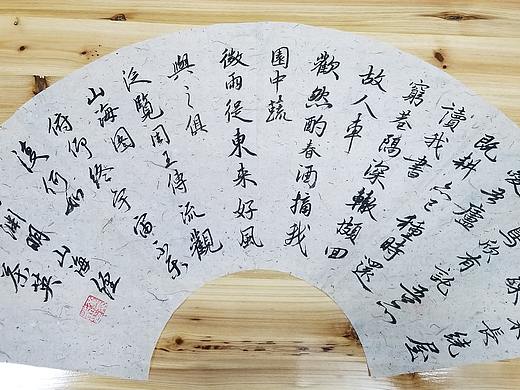 木長繞屋
鳥欣有託吾亦
愛吾廬
既耕亦已種時還
讀我書
窮巷隔深轍頗回
故人車
歡然酌春酒摘我
園中蔬
微雨從東來好風
與之俱
泛覽周王傳流觀
山海圖
俯仰終宇宙不樂
復何如
淵明山海經